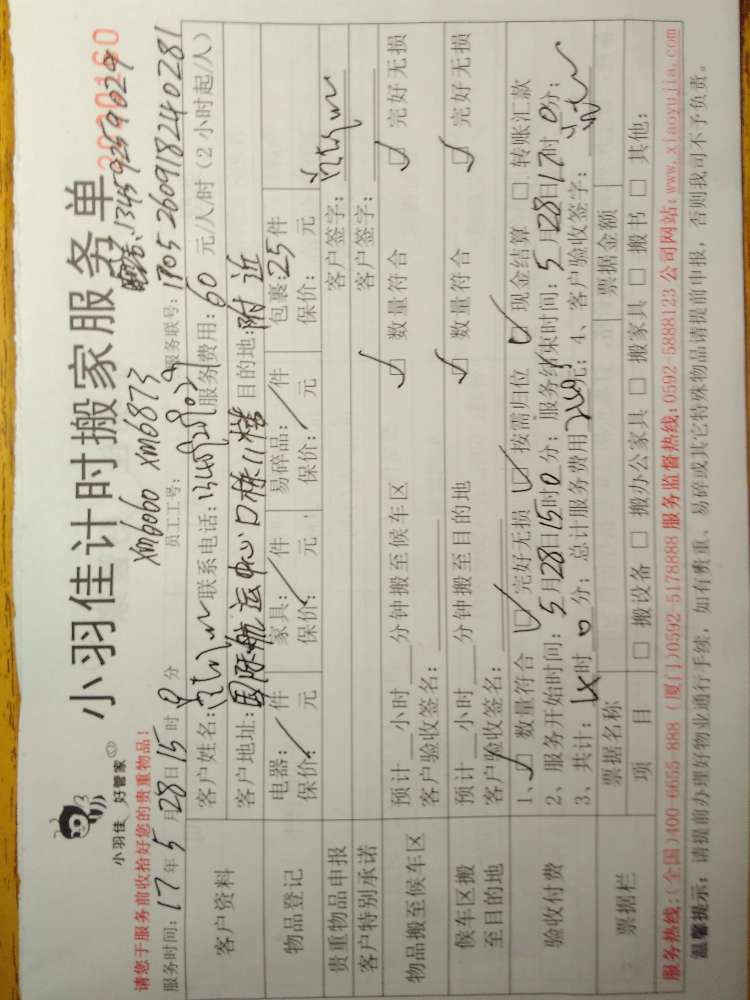 小羽佳 好管家
小羽佳计时搬家服务单
请您于服务前收拾好您的贵重物品!
xm6060 xm6873
13459259029
服务时间: 17年5月28日15时0分 员工工号: 服务联号: 1705260918240281
客户资料
客户姓名: 联系电话: 服务费用: 60 元/人/时 (2小时起/人)
客户地址: 国际航运中心D栋11楼 目的地: 附近
物品登记
电器: 件 家具: 件 易碎品: 件 包裹: 25件
保价: 元 保价: 元 保价: 元 保价: 元
贵重物品申报 客户签字:
客户特别承诺 客户签字:
物品搬至候车区
预计 小时 分钟搬至候车区 数量符合 完好无损
客户验收签名:
候车区搬至目的地
预计 小时 分钟搬至目的地 数量符合 完好无损
客户验收签名:
验收付费
1、 数量符合 完好无损 按需归位 现金结算 转账汇款
2、服务开始时间: 5月28日15时0分; 服务结束时间: 5月28日17时0分;
3、共计: 时0分; 总计服务费用 元; 4、客户验收签字:
票据栏
票据名称 票据金额
项 目 搬设备 搬办公家具 搬家具 搬书 其他:
服务热线: (全国)400-6655-888 (厦门)0592-5178888 服务监督热线: 0592-5888123 公司网站: www.xiaoyujia.com
温馨提示: 请提前办理好物业通行手续, 如有贵重、易碎或其它特殊物品请提前申报, 否则我司不予负责。